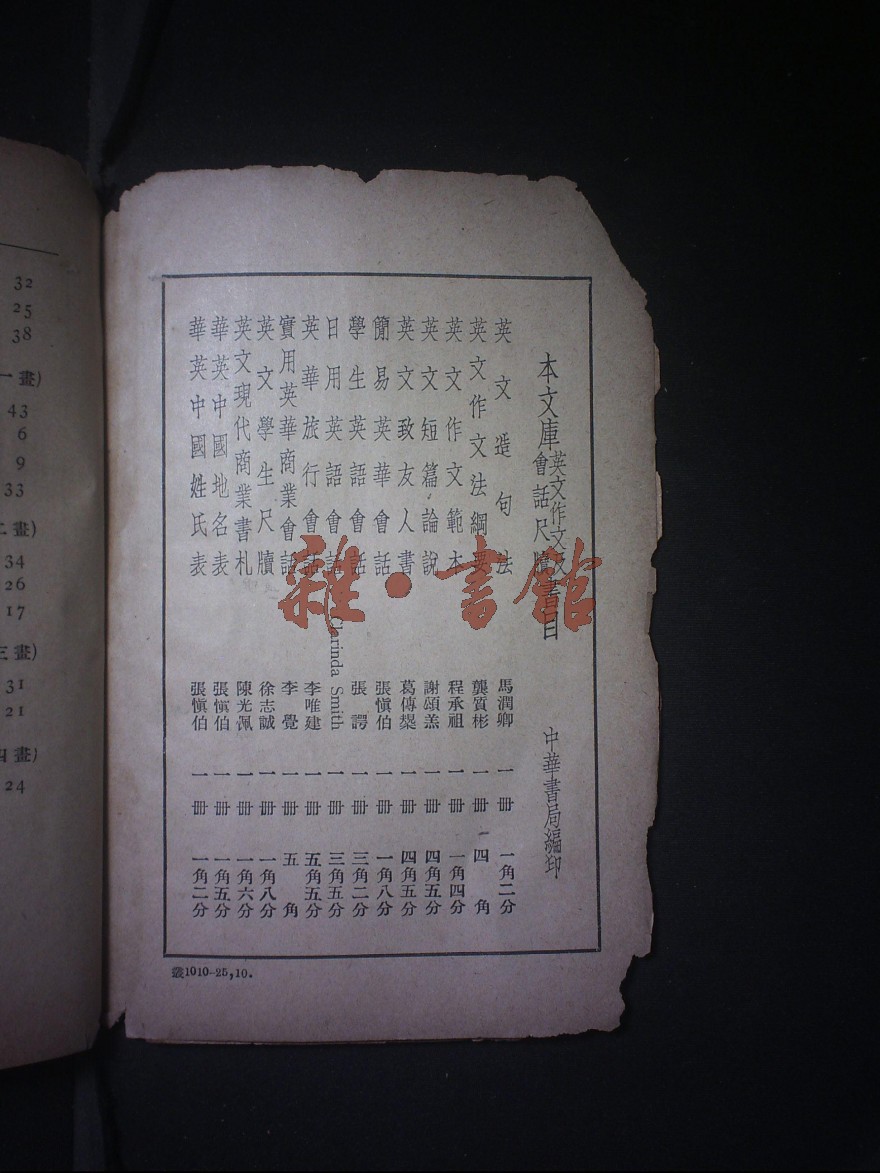 本文庫英文作文及會話尺牘書目 中華書局編印
英文造句法 馬潤卿 一冊 一角二分
英文作文法綱要 龔質彬 一冊 四角
英文作文範本 程承祖 一冊 一角四分
英文短篇論說 謝頌羔 一冊 四角五分
英文致友人書 葛傳槼 一冊 四角五分
簡易英華會話 張慎伯 一冊 一角八分
學生英語會話 張諤 一冊 三角二分
日用英語會話 Clarinda Smith 一冊 三角五分
英華旅行會話 李唯建 一冊 五角五分
實用英華商業會話 李覺 一冊 五角
英文學生尺牘 徐志誠 一冊 一角八分
英文現代商業書札 陳光佩 一冊 一角六分
華英中國地名表 張慎伯 一冊 一角五分
華英中國姓氏表 張慎伯 一冊 一角二分
叢1010—25,10.
雜·書館
32
25
38
一畫)
43
6
9
33
二畫)
34
26
17
三畫)
31
21
四畫)
24